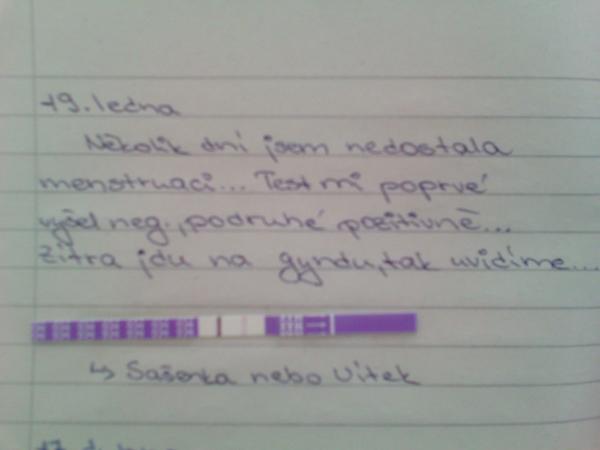 19. ledna
Několik dní jsem nedostala
menstruaci... Test mi poprvé
vyšel neg., podruhé pozitivně...
Zítra jdu na gyndu, tak uvidíme...
↳ Sašenka nebo Vítek